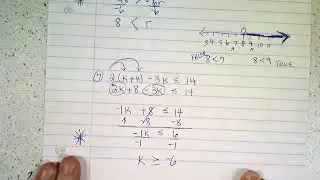 -6 -6
8 < r
3 4 5 6 7 8 9 10 11
FALSE 8<7 8<9 TRUE
2(k+4) -3k ≤ 14
2k+8 -3k ≤ 14
-1k +8 ≤ 14
-8 -8
-1k ≤ 6
-1 -1
k ≥ -6